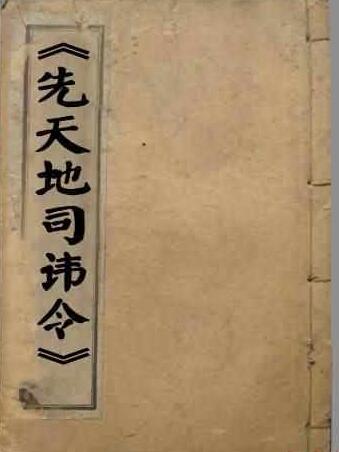 《先天地司讳令》